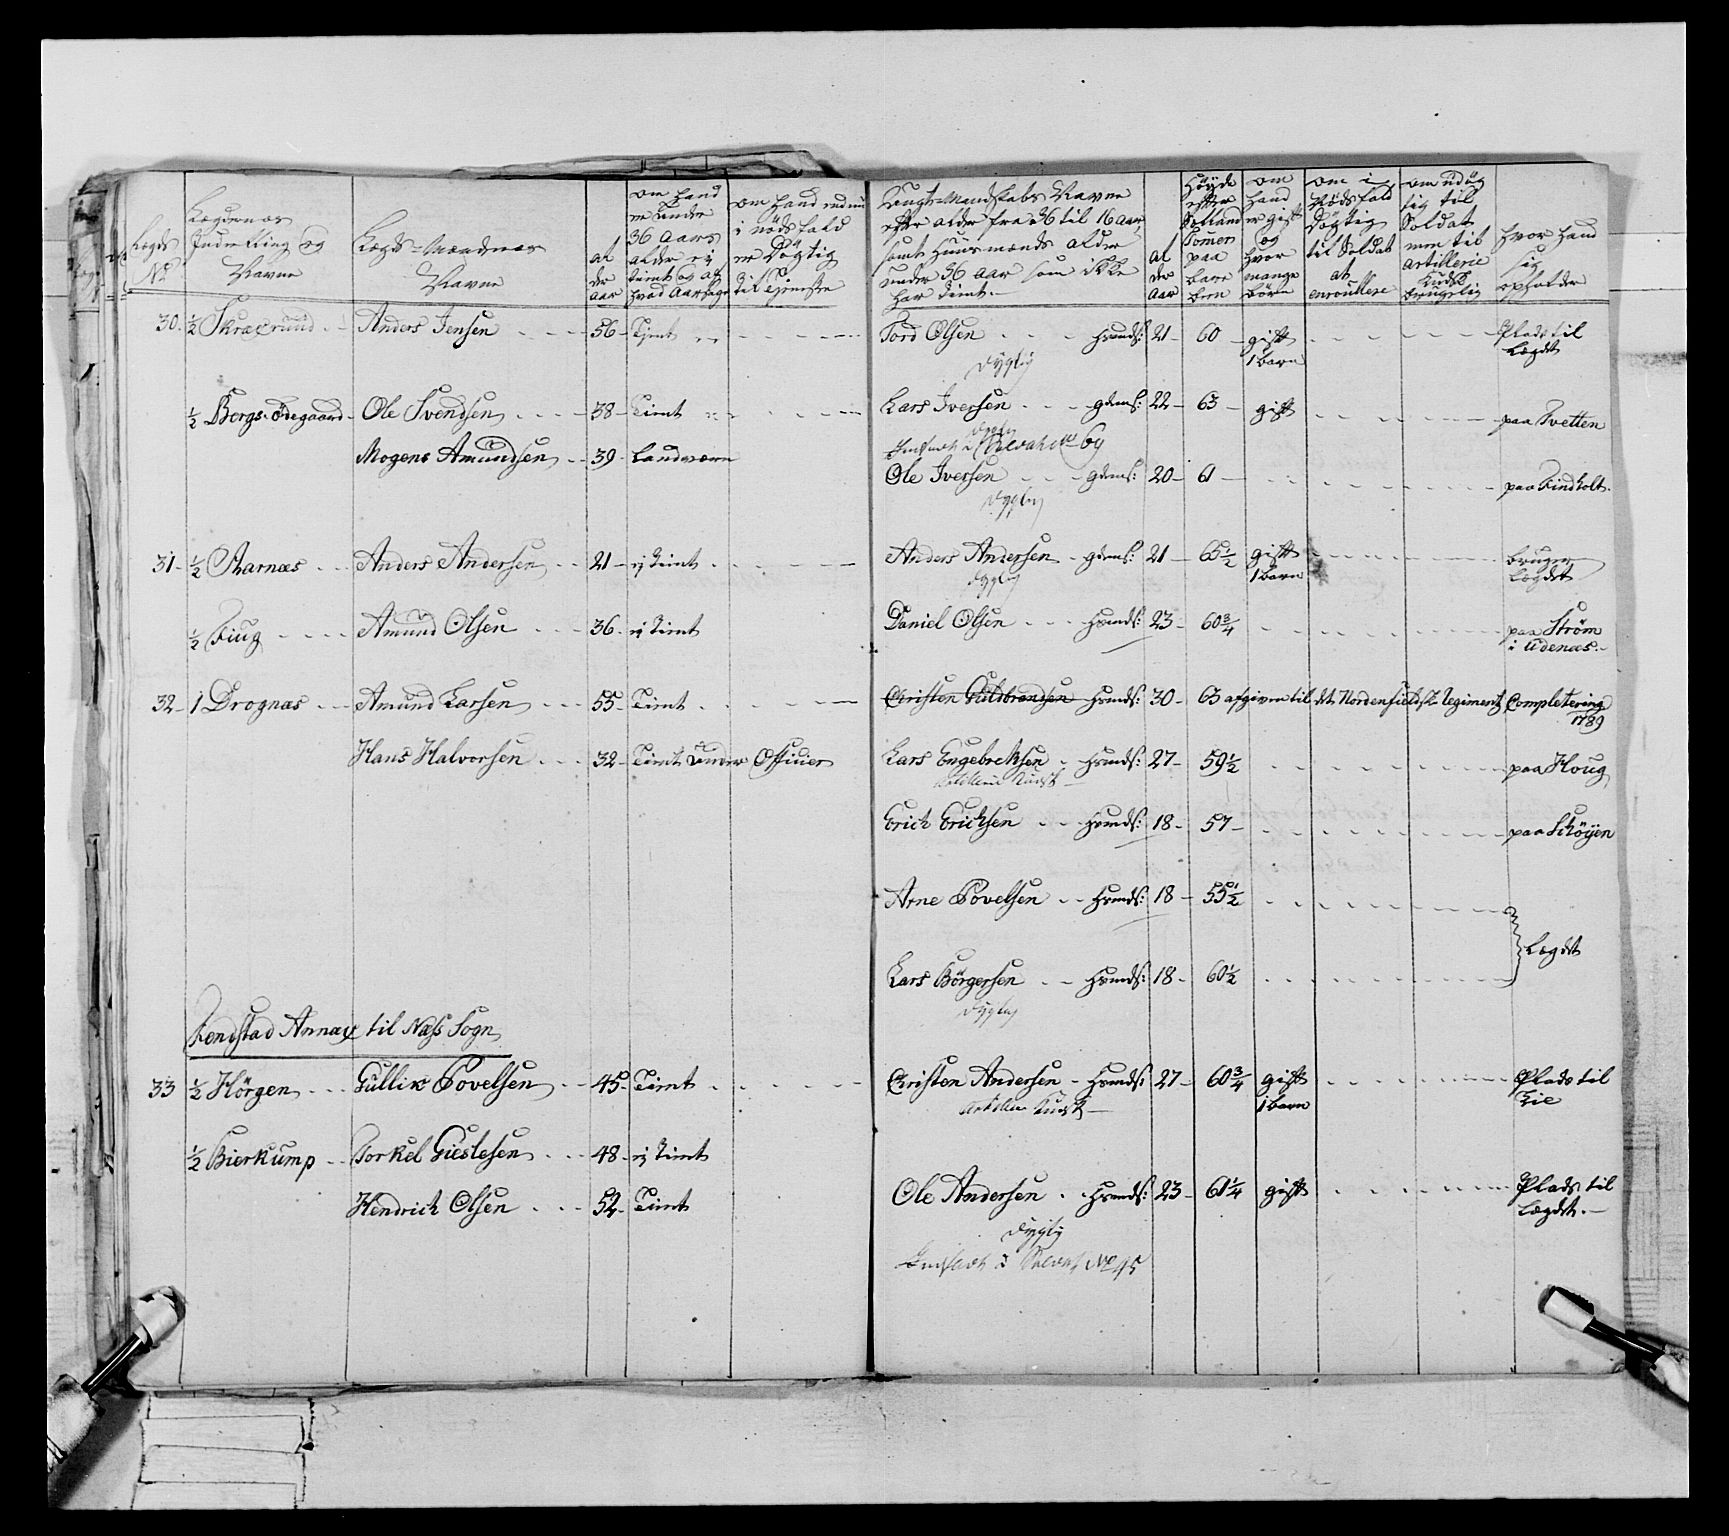 Lægds No
Lægdenes Inddeeling og Navne
Lægds-Mændenes Navne
alder aar
om hand er under 36 aars alder ej tient og af hvad Aarsage
om hand endnu i nödsfald er Dögtig til Tjeneste
Ungt-Mandskabs Navne efter alder fra 36 til 16 aar, samt Huusmænds alder under 36 aar som ikke har tient.
alder aar
Höyde efter Sollands Tomer paa bare been
om hand er gift og hvor mange börn
om i Nödsfald Dögtig til Soldat at enroullere
om udüg tig til Soldat men til artillerie Kudsk brugelig
hvor hand sig opholder
30. ½ Skraxrud Anders Jensen 56 Tient Tord Olsen Huusmds: 21 60 gift 1 barn Plads til Lægdet
Dygtig
½ Bergs-Ödegaard Ole Svendsen 38 Tient Lars Iversen gdms: 22 63 gift paa Tvetten
Dygtig
Mogens Amundsen 39 Landværn
No 69
Ole Iversen gdms: 20 61 paa Findholt.
Dygtig
31 ½ Aarnæs Anders Andersen 21 ej tient Anders Andersen gdms: 21 65½ gift 1 barn bruger Lægdet
Dygtig
½ Fiug Amund Olsen 36 ej tient Daniel Olsen Husmds: 23 60¾ paa Ström i Udenæs.
32 1 Drognæs Amund Larsen 55 Tient Christen Guldbrandsen Husmds: 30 63 afgiven til det Nordenfieldske Regiments Completering 1789
Hans Halvorsen 32 Tient Under Officier Lars Engebretsen Husmds: 27 59½ paa Houg
Artillerie Kudsk
Erich Erichsen Husmds: 18 57 paa Schöyen
Arne Povelsen Husmds: 18 55½
Lægdet
Lars Börgersen Husmds: 18 60½
Dygtig
Fendstad Annax til Næss Sogn
33 ½ Hörgen Gullik Povelsen 45 Tient Christen Andersen Husmds: 27 60¾ gift 1 barn Plads til Lie
Artillerie Kudsk
½ Bierkump Torkel Gieslesen 48 ej tient
Hendrich Olsen 52 Tient Ole Andersen Husmds: 23 61¼ gift Plads til Lægdet.
Dygtig
No 45